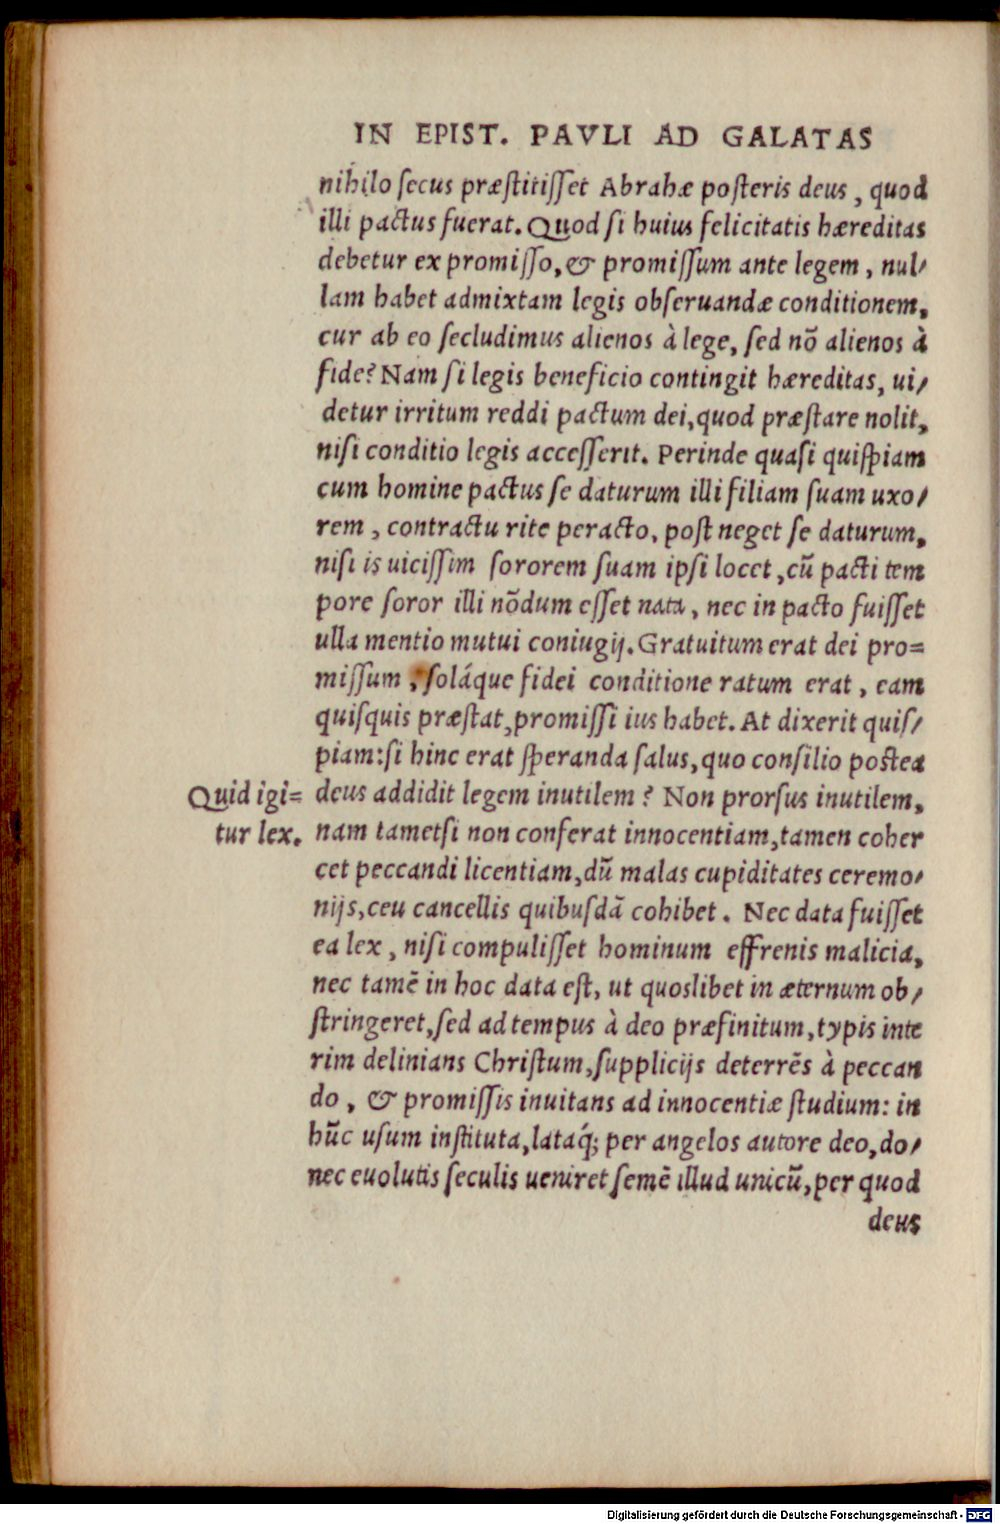 IN EPIST. PAVLI AD GALATAS
nihilo ſecus præſtitiſſet Abrahæ poſteris deus, quod
illi pactus fuerat. Quod ſi huius felicitatis hæreditas
debetur ex promiſſo, & promiſſum ante legem, nul/
lam habet admixtam legis obſeruandæ conditionem,
cur ab eo ſecludimus alienos à lege, ſed nõ alienos à
fide? Nam ſi legis beneficio contingit hæreditas, ui/
detur irritum reddi pactum dei, quod præſtare nolit,
niſi conditio legis acceſſerit. Perinde quaſi quiſpiam
cum homine pactus ſe daturum illi filiam ſuam uxo/
rem, contractu rite peracto, poſt neget ſe daturum,
niſi is uiciſſim ſororem ſuam ipſi locet, cũ pacti tem
pore ſoror illi nõdum eſſet nata, nec in pacto fuiſſet
ulla mentio mutui coniugij. Gratuitum erat dei pro=
miſſum, ſoláque fidei conditione ratum erat, eam
quiſquis præſtat, promiſſi ius habet. At dixerit quiſ/
piam: ſi hinc erat ſperanda ſalus, quo conſilio poſtea
Quid igi=
tur lex.
deus addidit legem inutilem? Non prorſus inutilem,
nam tametſi non conferat innocentiam, tamen coher
cet peccandi licentiam, dũ malas cupiditates ceremo/
nijs, ceu cancellis quibuſdã cohibet. Nec data fuiſſet
ea lex, niſi compuliſſet hominum effrenis malicia,
nec tamẽ in hoc data eſt, ut quoslibet in æternum ob/
ſtringeret, ſed ad tempus à deo præfinitum, typis inte
rim delinians Chriſtum, ſupplicijs deterrẽs à peccan
do, & promiſſis inuitans ad innocentiæ ſtudium: in
hũc uſum inſtituta, lataq́; per angelos autore deo, do/
nec euolutis ſeculis ueniret ſemẽ illud unicũ, per quod
deus
Digitalisierung gefördert durch die Deutsche Forschungsgemeinschaft - DFG